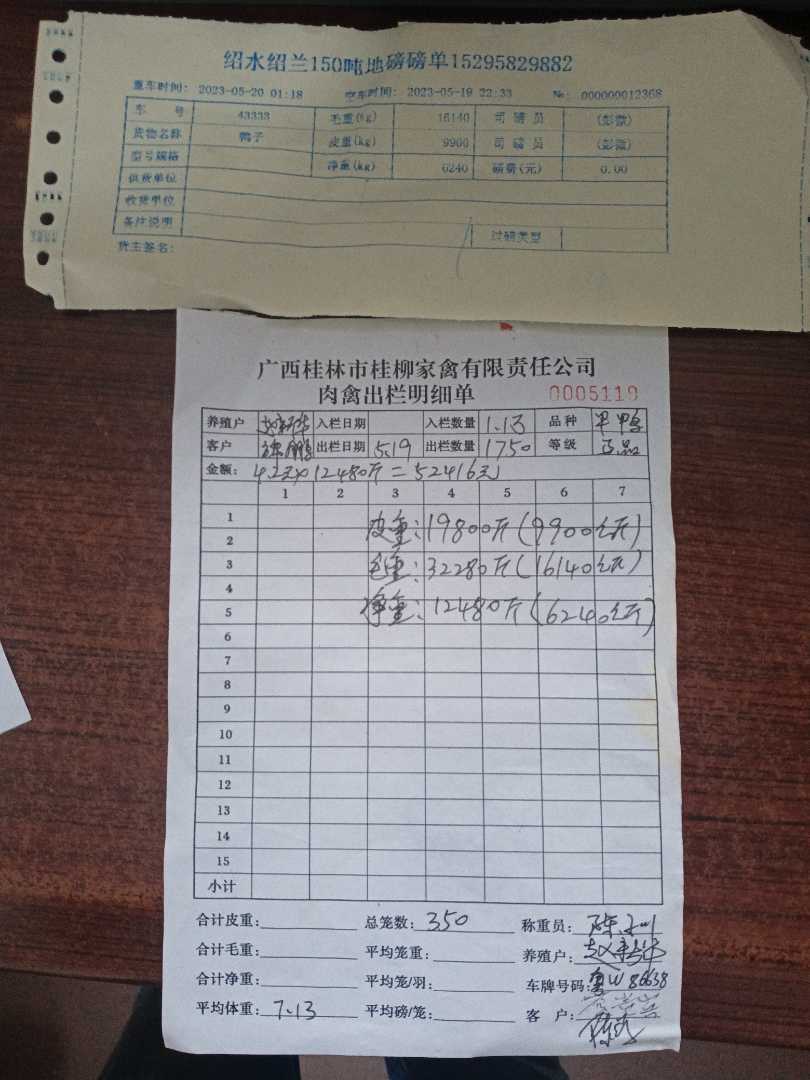 绍水绍兰150吨地磅磅单15295829882
重车时间: 2023-05-20 01:18 空车时间: 2023-05-19 22:33 №: 000000012368
车 号 43333 毛重(kg) 16140 司磅员 (彭微)
货物名称 鸭子 皮重(kg) 9900 司磅员 (彭微)
型号规格 净重(kg) 6240 磅费(元) 0.00
供货单位
收货单位
备注说明 过磅类型
货主签名:
广西桂林市桂柳家禽有限责任公司
肉禽出栏明细单 0005119
养殖户 入栏日期 入栏数量 1.13 品种 鸭
客户 出栏日期 5.19 出栏数量 1750 等级 正品
金额: 4.2元×12480斤=52416元
1 2 3 4 5 6 7
1
皮重:19800斤(9900公斤)
2
3 毛重:32280斤(16140公斤)
4
5 净重:12480斤(6240公斤)
6
7
8
9
10
11
12
13
14
15
小计
合计皮重: 总笼数: 350 称重员:
合计毛重: 平均笼重: 养殖户:
合计净重: 平均笼/羽: 车牌号码: 粤W86638
平均体重: 7.13 平均磅/笼: 客 户: